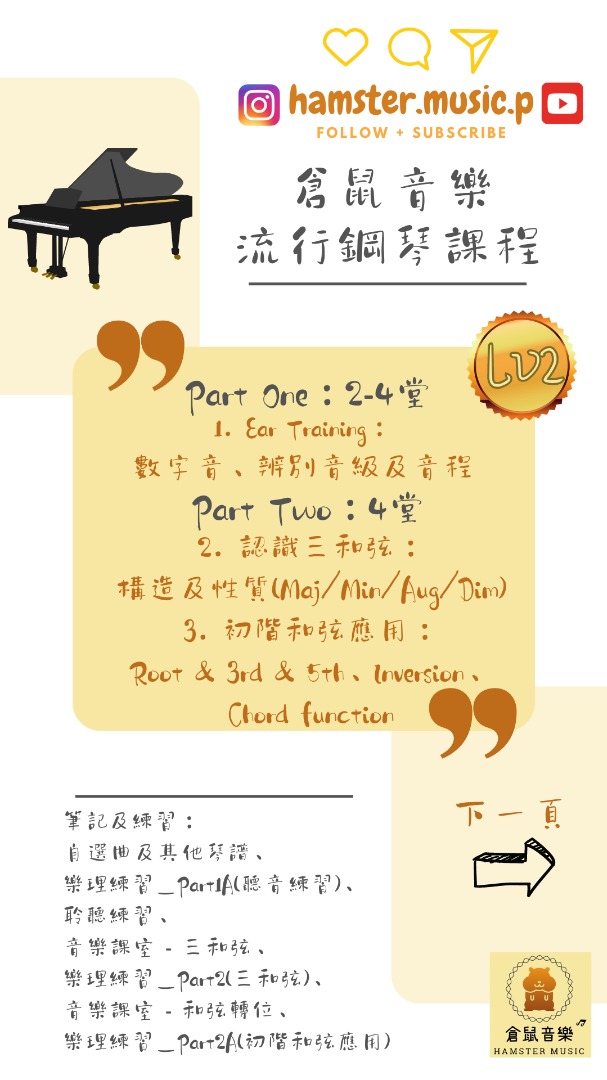 hamster.music.p
FOLLOW + SUBSCRIBE
倉鼠音樂
流行鋼琴課程
LV2
Part One：2-4堂
1. Ear Training：
數字音、辨別音級及音程
Part Two：4堂
2. 認識三和弦：
構造及性質(Maj/Min/Aug/Dim)
3. 初階和弦應用：
Root & 3rd & 5th、Inversion、
Chord function
筆記及練習：
自選曲及其他琴譜、
樂理練習_Part1A(聽音練習)、
聆聽練習、
音樂課室 - 三和弦、
樂理練習_Part2(三和弦)、
音樂課室 - 和弦轉位、
樂理練習_Part2A(初階和弦應用)
下一頁
倉鼠音樂
HAMSTER MUSIC